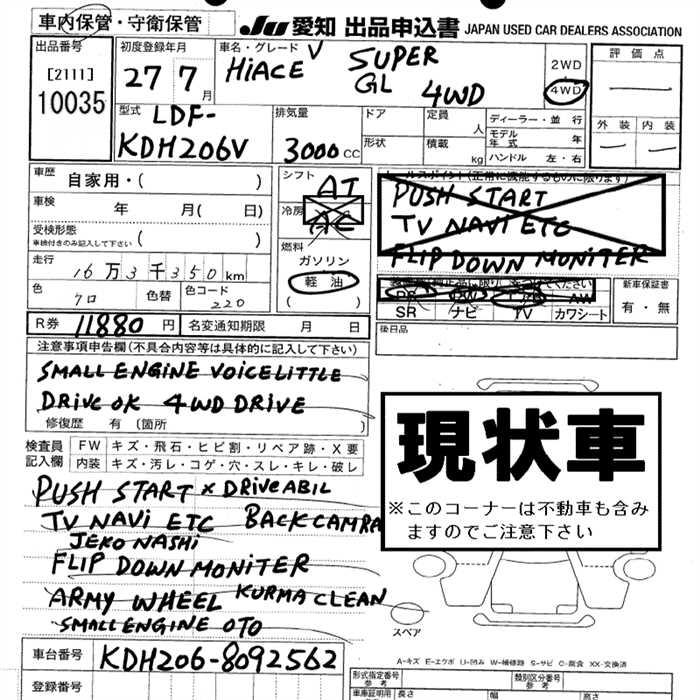 車内保管・守衛保管
JU 愛知 出品申込書 JAPAN USED CAR DEALERS ASSOCIATION
出品番号
[2111]
10035
初度登録年月
27 7 月
車名・グレード
HIACE V SUPER
GL 4WD
2WD
4WD
評価点
外装 内装
型式
LDF-
KDH206V
排気量
3000 cc
ドア
形状
定員 人
積載 kg
ディーラー・並 行
モデル年式 年
ハンドル 左・右
車歴
自家用・( )
車検
年 月( 日)
受検形態
車検付きのみ記入して下さい ( )
走行
16万3千350km
色
クロ
色替
色コード
220
シフト
AT
冷房
AC
燃料
ガソリン
軽油
( )
セールスポイント(正常に機能するものに限ります)
PUSH START
TV NAVI ETC
FLIP DOWN MONITER
AW
SR ナビ TV カワシート
新車保証書
有・無
R券 11880 円
名変通知期限 月 日
後日品
注意事項申告欄(不具合内容等は具体的に記入して下さい)
SMALL ENGINE VOICE LITTLE
DRIVE OK 4WD DRIVE
修復歴 有 〔箇所
検査員
記入欄
FW キズ・飛石・ヒビ割・リペア跡・X要
内装 キズ・汚レ・コゲ・穴・スレ・キレ・破レ
PUSH START x DRIVEABIL
TV NAVI ETC BACK CAMRA
JEKO NASHI
FLIP DOWN MONITER
ARMY WHEEL KURMA CLEAN
SMALL ENGINE OTO
現状車
※このコーナーは不動車も含み
ますのでご注意下さい
スペア
A-キズ E-エクボ U-凹み W-補修跡 S-サビ C-腐食 XX-交換済
車台番号
KDH206-8092562
登録番号
形式指定番号
参考
類別区分番号
参考
車庫証明用
参考
長さ
幅
高さ